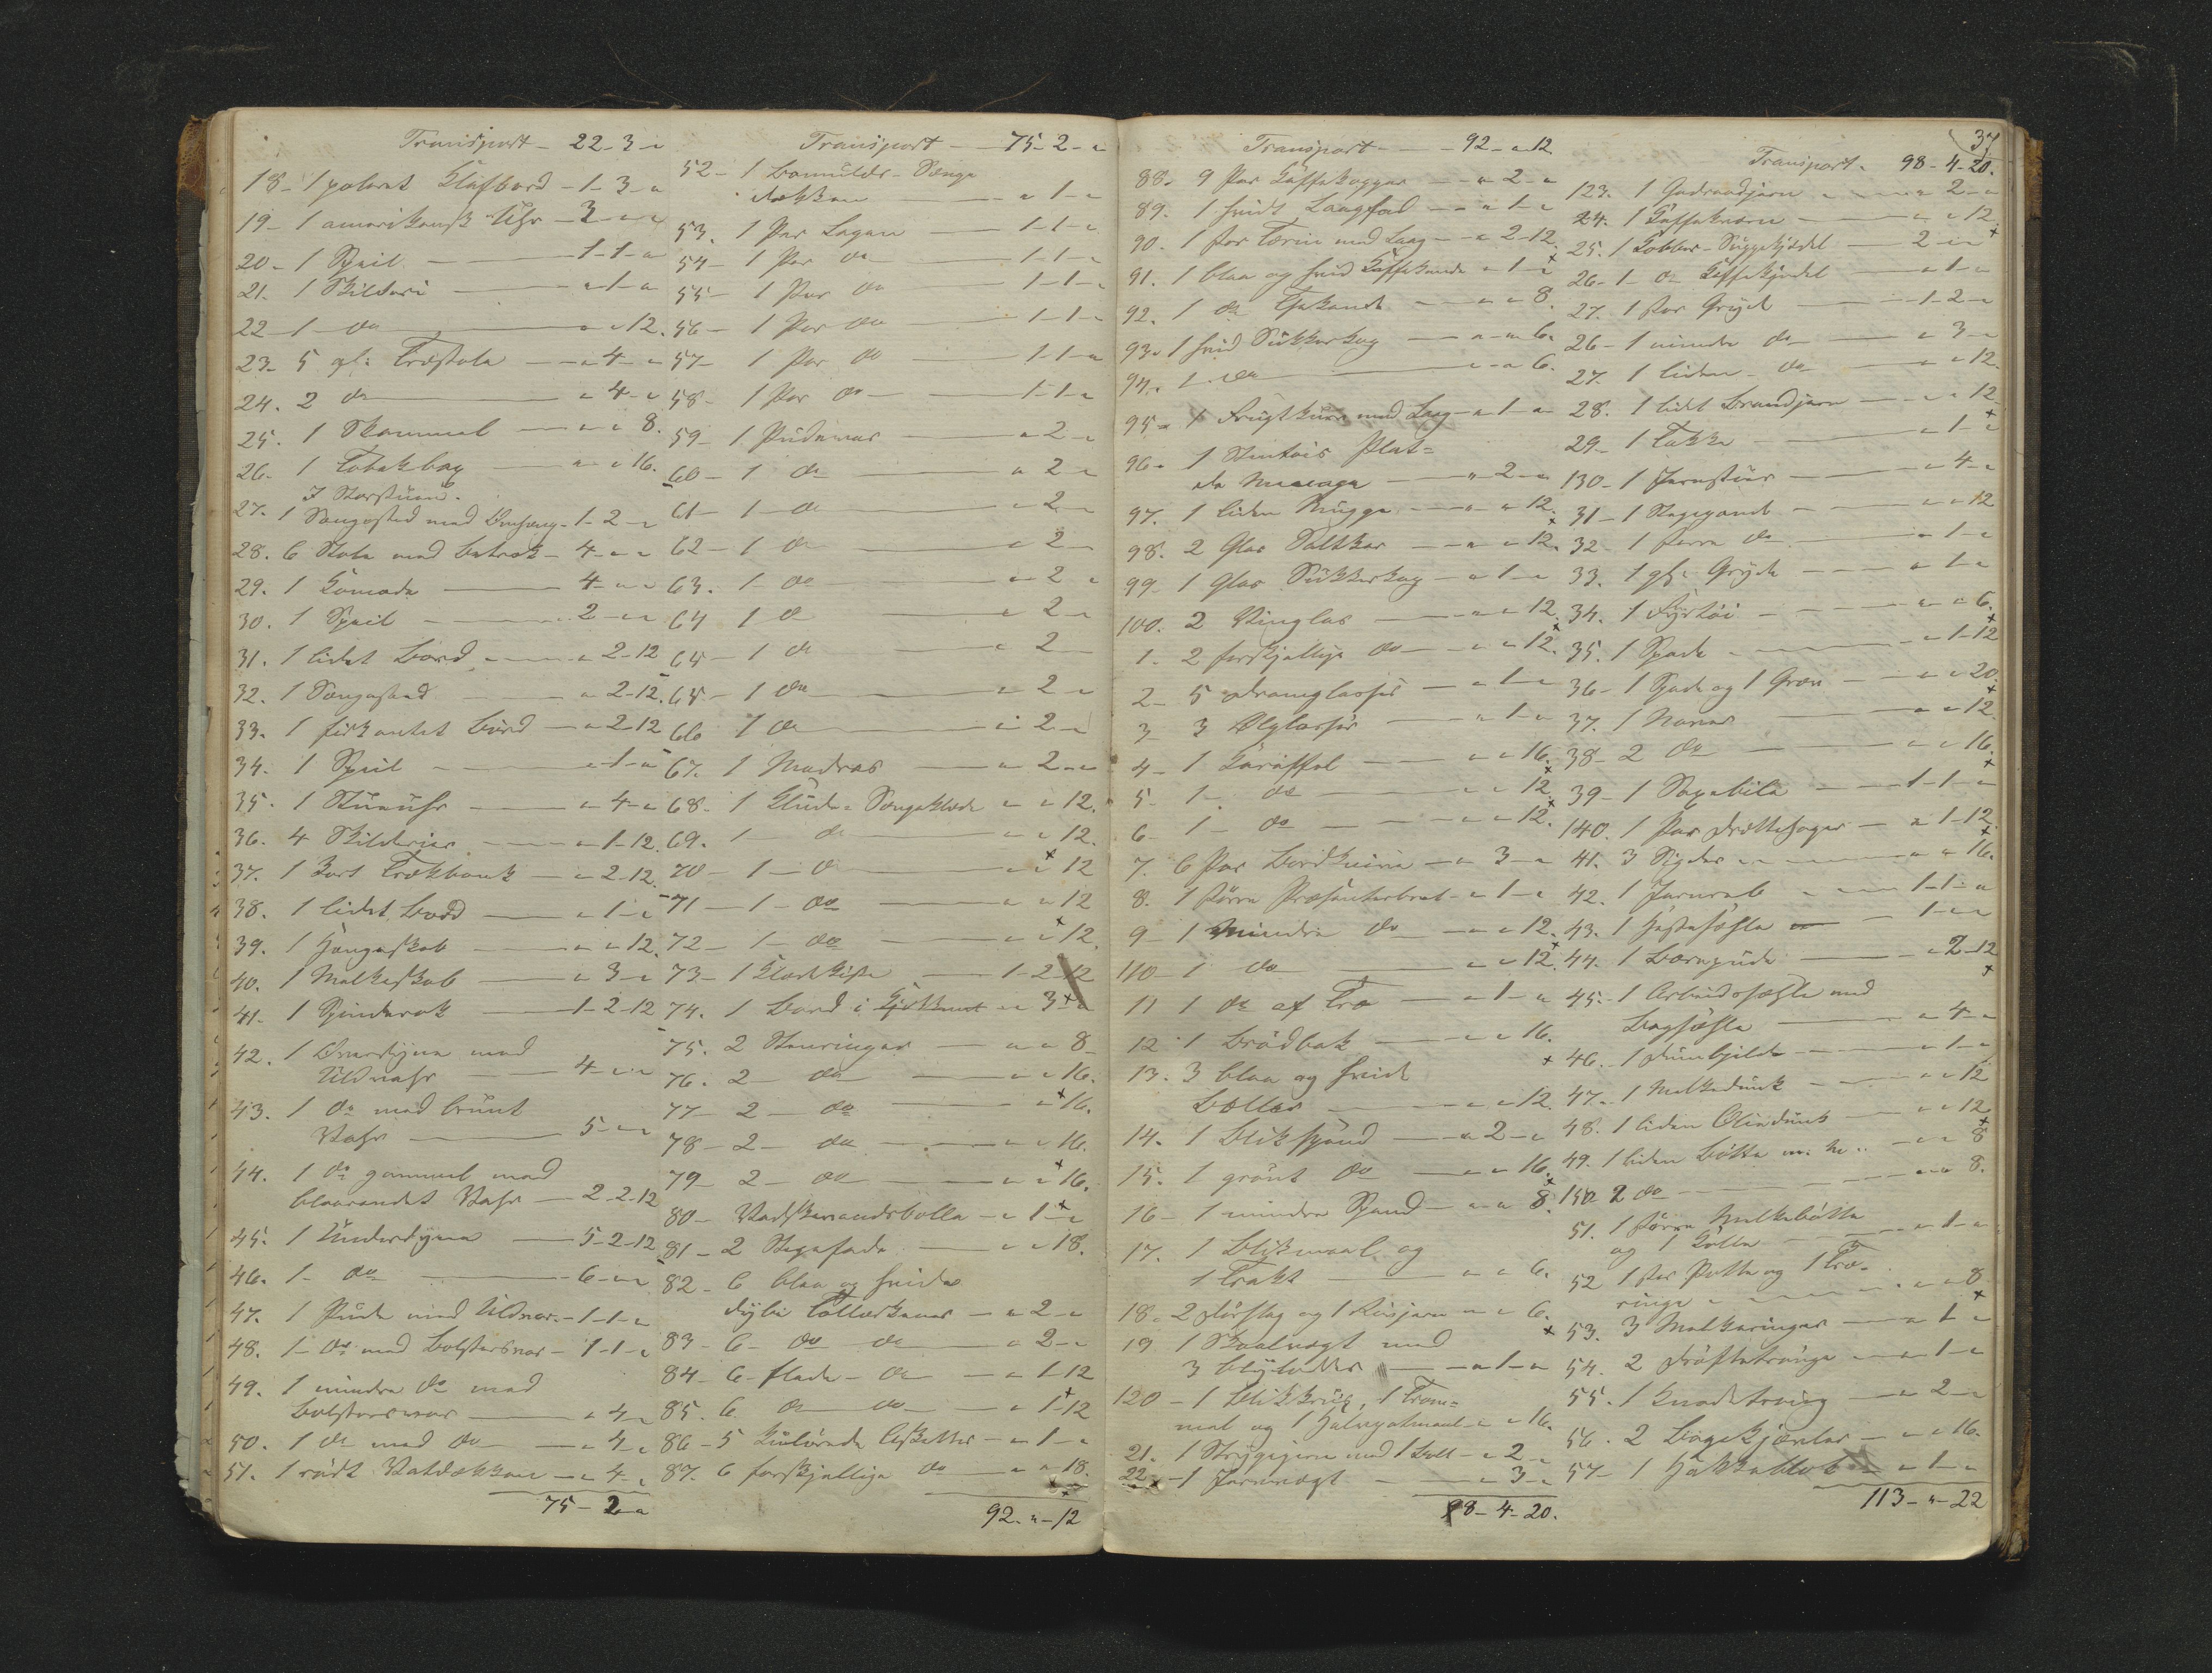 Transport - 22-3-"
18- 1 poleret Klafbord - 1-3-"
19- 1 amerikansk Uhr - 3-"-"
20- 1 Speil - 1-1-"
21. 1 Skilderi - "-1-"
22- 1 do - "-"-12.
23- 5 gl: Træstole - "-4-"
24. 2 do - "-4-"
25. 1 Skammel - "-"-8.
26. 1 Tobakbox - "-"-16.
I Storstuen.
27. 1 Sengested med Omhæng - 1-2-"
28. 6 Stole med Betræk - 4-"-"
29. 1 Komode - 4-"-"
30. 1 Speil - 2-"-"
31. 1 lidet Bord - "-2-12
32. 1 Sengested - "-2-12.
33. 1 firkantet Bord - "-2-12
34. 1 Speil - "-1-"
35. 1 Stueuhr - "-4-"
36. 4 Skilderier - "-1-12.
37. 1 kort Trækbænk - "-2-12.
38. 1 lidet Bord - "-1-"
39. 1 Hængeskab - "-"-12.
40. 1 Melkeskab - "-3-"
41- 1 Spinderok - 1-2-12
42. 1 Overdyne med
Uldvahr - 4-"-"
43. 1 do med brunt
Vahr - 5-"-"
44. 1 do gammel med
blaarandet Vahr - 2-2-12
45. 1 Underdyne - 5-2-12
46. 1- do - 6-"-"
47. 1 Pude med Uldvar - 1-1-"
48. 1- do med Bolstersvar - 1-1-"
49. 1 mindre do med
Bolstersvar - "-4-"
50. 1 do med do - "-4-"
51. 1 rødt Vatdækken - "-4-"
75-2-"
Transport - 75-2-"
52- 1 Bomulds-Senge
dækken - "-1-"
53. 1 Par Lagen - 1-1-"
54- 1 Par do - 1-1-"
55- 1 Par do - 1-1-"
56- 1 Par do - 1-1-"
57- 1 Par do - 1-1-"
58- 1 Par do - 1-1-"
59- 1 Pudevar - "-2-"
60- 1 do - "-2-"
61- 1 do - "-2-"
62- 1 do - "-2-
63. 1- do - "-2-"
64 1 do - "-2-"
65- 1 do - "-2-
65- 1 do - "-2-"
66 1 do - "-2-"
67. 1 Madras - "-2-"
68- 1 Klude-Sengeklæde - "-"-12.
69. 1- do - "-"-12.
70- 1- do - "-"-12
71- 1- do - "-"-12
72- 1- do - "-"-12.
73- 1 Klædekiste - 1-2-12
74. 1 Bord i Kjøkkenet - "-3-"
75. 2 Steenringer - "-"-8-
76. 2- do - "-"-16.
77- 2- do - "-"-16.
78- 2- do - "-"-16.
79- 2- do - "-"-16.
80- Vadskevandsbolle - "-1-"
81- 2 Stegefade - "-"-18.
82- 6 blaa og hvide
dybe Tallerkener - "-2-"
83- 6- do do - "-2-"
84- 6- flade- do - "-1-12
85. 6 do do - "-1-12
86- 5 kulørede Asketter - "-1-"
87. 6 forskjellige do - "-"-18.
92-"-12
37
Transport - 92-"-12
88. 9 Par Kaffekopper - "-2-"
89. 1 hvidt Laagfad - "-1-"
90. 1 stor Terrin med Laag - "-2-12.
91. 1 blaa og hvid Kaffekande - "-1-"
92. 1 do Thekande - "-"-8.
93. 1 hvid Sukkerkop - "-"-6.
94. 1 do - "-"-6.
95- 1 Frugtkurv med Laag - "-1-"
96. 1 Stentøis Plat=
de Menage - "-2-"
97. 1 liden Mugge - "-"-12.
98. 2 Glas Saltkar - "-"-12.
99. 1 Glas Sukkerkop - "-1-"
100. 2 Vinglas - "-"-12.
1. 2 forskjellige do - "-"-12.
2- 5 Dramglasser - "-1-"
3- 3 Ølglasser - "-1-"
4- 1 Karaffel - "-"-16.
5- 1- do - "-"-12
6- 1- do - "-"-12.
7. 6 Par Bordknive - "-3-"
8. 1 større Præsenterbret - "-1-"
9- 1 mindre do - "-"-12.
110- 1 do - "-"-12.
11 1 do af Træ - "-1-"
12 1 Brødbak - "-"-16.
13. 3 blaa og hvide
Boller - "-"-12.
14. 1 Blikspand - "-2-"
15. 1 grønt do - "-"-16.
16- 1 mindre Spand - "-"-8.
17. 1 Blikmaal og
1 Trakt - "-"-6.
18. 2 Dørslag og 1 Rivjern - "-"-6.
19 1 Skaalvægt med
3 Blylodder - "-1-"
120- 1 Blikkrus, 1 Trom=
mel og 1 Halvpotmaal - "-"-16.
21. 1 Strygejern med 1 Bolt - "-2-"
22- 1 Jernvægt - "-3-"
98-4-20.
Transport - 98-4-20.
123. 1 Goderaadjern - "-2-"
24. 1 Kaffekværn - "-"-12.
25. 1 Kobber-Suppekjedel - 2-"-"
26- 1- do Kaffekjedel - "-1-"
27. 1 stor Gryde - 1-2-"
26- 1 mindre do - "-3-"
27. 1 liden- do - "-"-12.
28. 1 lidet Brandjern - "-"-12
29- 1 Takke - "-1-"
130- 1 Jernstør - "-4-"
31- 1 Stegepande - "-"-12
32- 1 større do - "-1-"
33. 1 gl: Gryde - "-1-"
34. 1 Fyrtøi - "-"-6.
35. 1 Spade - "-1-12
36- 1 Spade og 1 Grev - "-"-20.
37. 1 Naver - "-"-12.
38- 2 do - "-"-16.
39- 1 Sagebile - 1-1-"
140. 1 Par Drættehager - "-1-12.
41. 3 Sigder - "-"-16.
42. 1 Jernreb - 1-1-"
43. 1 Hestesæhle - 1-"-"
44. 1 Børnepude - "-2-12
45- 1 Arbeidssæhle med
Bagsæhle - "-4-"
46. 1 Dumbjelde - "-1-"
47. 1 Melkedunk - "-"-12
48. 1 liden Oliedunk - "-"-12
49. 1 liden Bøtte m. m. - "-"-8
150 2 do - "-"-8.
51. 1 større Melkebøtte
og 1 Kolle - "-1-"
52 1 stor Potte og 1 Træ-
ringe - "-"-8
53. 3 Melkeringer - "-1-"
54. 2 Drøftetrouge - "-1-"
55. 1 Knadetroug - "-2-"
56. 2 Bøgekjævler - "-"-16.
57- 1 Hakkeblok - "-1-"
113-"-22